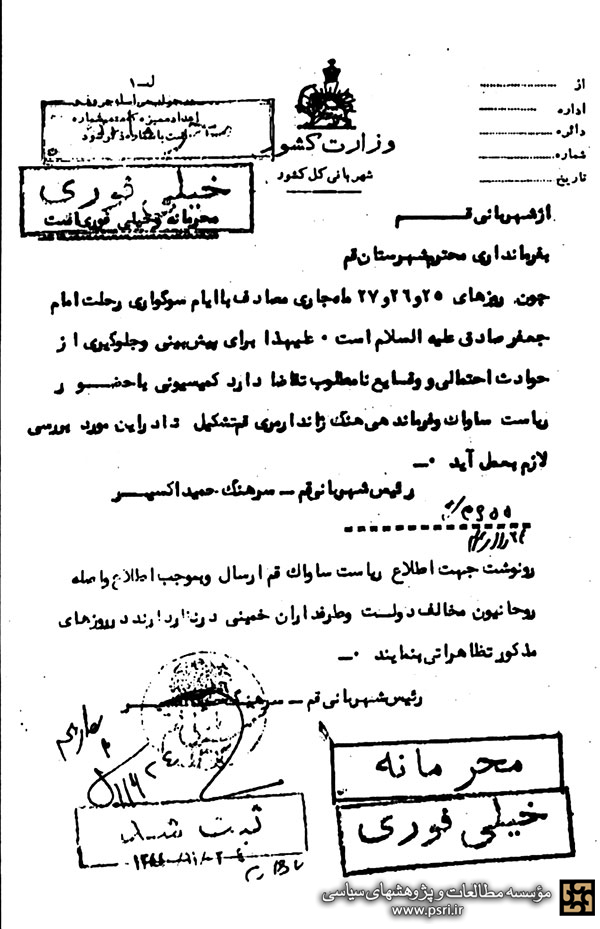 از
اداره
دائره
شماره
تاریخ
وزارت کشور
شهربانی کل کشور
خیلی فوری
محرمانه و خیلی فوری است
از شهربانی قـــــم
بفرمانداری محترم شهرستان قم
چون روزهای ۲۵ و ۲۶ و ۲۷ ماه جاری مصادف با ایام سوگواری رحلت امام
جعفر صادق علیه السلام است ۰ علیهذا برای پیش‌بینی و جلوگیری از
حوادث احتمالی و وقایع نامطلوب تقاضا دارد کمیسیونی با حضـــور
ریاست ساواک و فرمانده هی هنگ ژاندارمری قم تشکیل تا در این مورد بررسی
لازم بعمل آید ۰ــ
رئیس شهربانی قم ــ سرهنگ حمید اکسیـــر
رونوشت جهت اطلاع ریاست ساواک قم ارسال و بموجب اطلاع واصله
روحانیون مخالف دولت و طرفداران خمینی در نظر دارند در روزهای
مذکور تظاهراتی بنمایند ۰ــ
رئیس شهربانی قم ــ سرهنگ
محرمانه
خیلی فوری
ثبت شد
مؤسسه مطالعات و پژوهشهای سیاسی
www.psri.ir